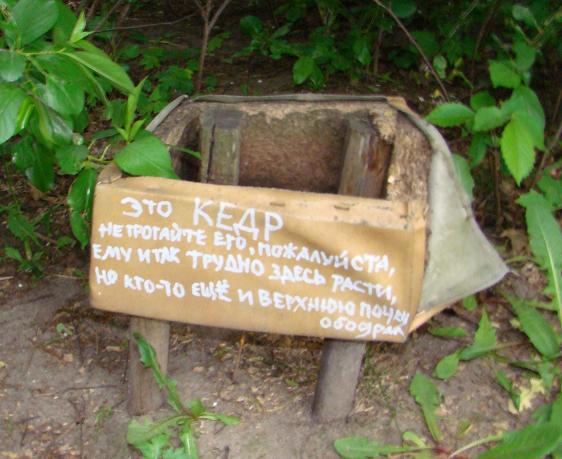 ЭТО КЕДР
НЕ ТРОГАЙТЕ ЕГО, ПОЖАЛУЙСТА,
ЕМУ И ТАК ТРУДНО ЗДЕСЬ РАСТИ,
НО КТО-ТО ЕЩЁ И ВЕРХНЮЮ ПОЧКУ
ОБОДРАЛ